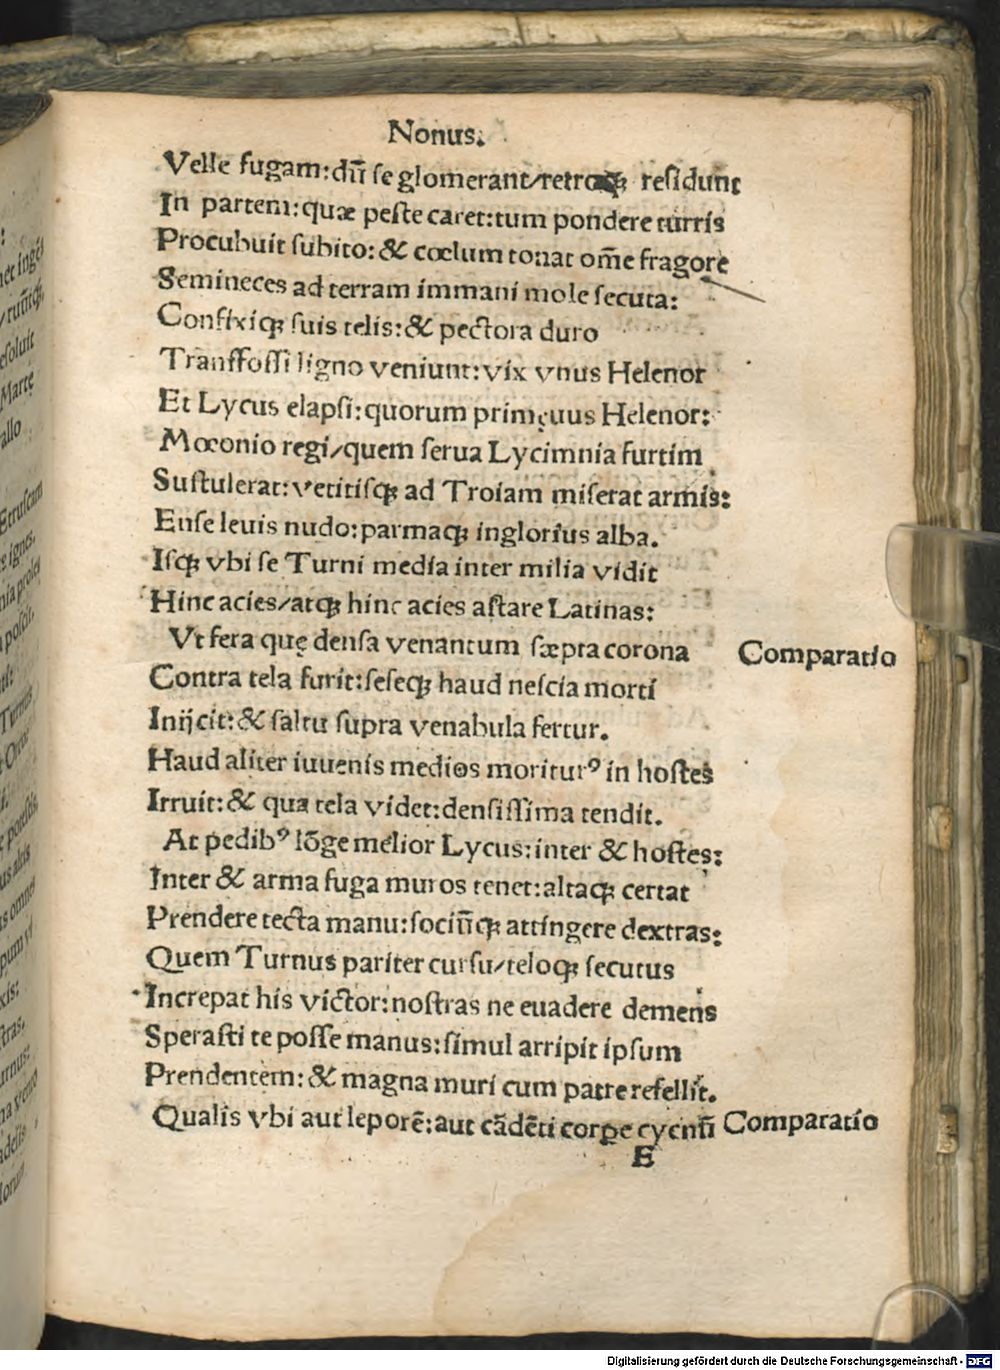 Nonus.
Velle fugam:dū se glomerant/retroqꝫ residunt
In partem:quæ peste caret:tum pondere turris
Procubuit subito:& cœlum tonat om̄e fragore
Semineces ad terram immani mole secuta:
Confixiqꝫ suis telis:& pectora duro
Transfossi ligno veniunt:vix vnus Helenor
Et Lycus elapsi:quorum primęuus Helenor:
Mœonio regi/quem serua Lycimnia furtim
Sustulerat:vetitisqꝫ ad Troiam miserat armis:
Ense leuis nudo:parmaqꝫ inglorius alba.
Isqꝫ vbi se Turni media inter milia vidit
Hinc acies/atqꝫ hinc acies astare Latinas:
Vt fera quę densa venantum sæpta corona
Comparatio
Contra tela furit:seseqꝫ haud nescia morti
Inijcit:& saltu supra venabula fertur.
Haud aliter iuuenis medios moriturꝰ in hostes
Irruit:& qua tela videt:densissima tendit.
At pedibꝰ lōge melior Lycus:inter & hostes:
Inter & arma fuga muros tenet:altaqꝫ certat
Prendere tecta manu:sociūqꝫ attingere dextras:
Quem Turnus pariter cursu/teloqꝫ secutus
Increpat his victor:nostras ne euadere demens
Sperasti te posse manus:simul arripit ipsum
Prendentem:& magna muri cum patre refellit.
Qualis vbi aut leporē:aut cādēti corꝑe cycnū
Comparatio
E
Digitalisierung gefördert durch die Deutsche Forschungsgemeinschaft - DFG